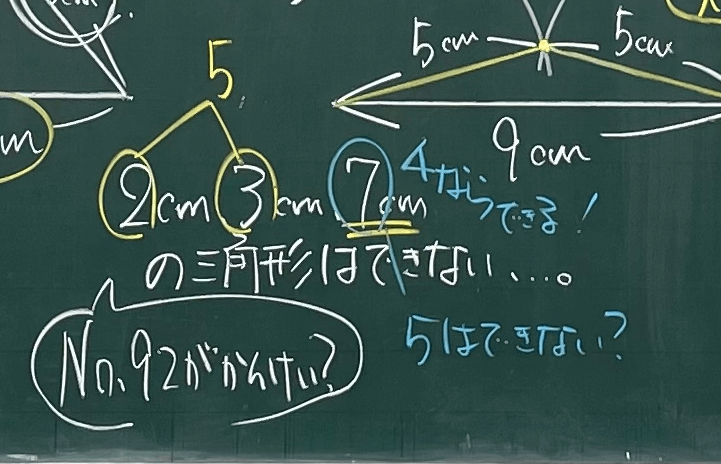 cm.
5cm
5cm
5
9cm
m
2cm 3cm 7cm
4ならできる!
の三角形はできない…。
5はできない?
No.92がかんけい?